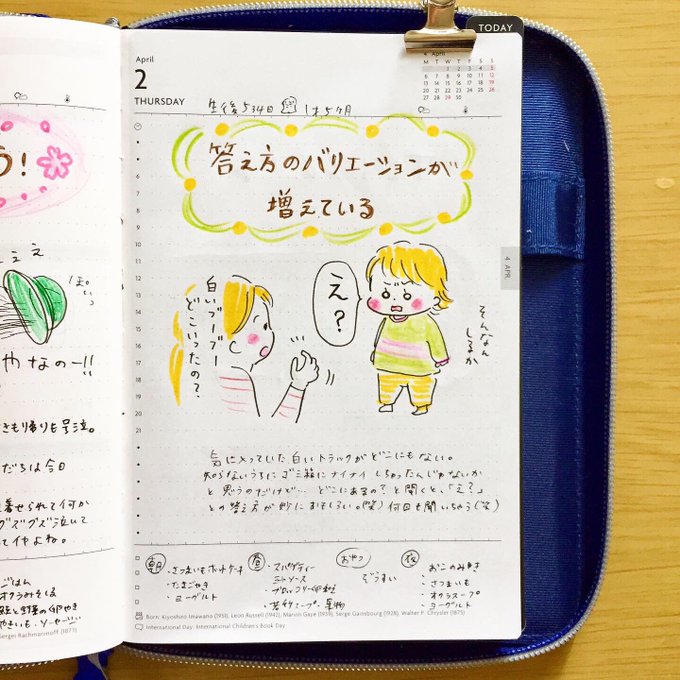 う!
ええ
やなのー!!
きもり帰りも号泣。
だちは今日
着せられて何か
グズグズ泣いて
てイヤよね。
ごはん
オクラみそ汁
Sergei Rachmaninoff (1873)
TODAY
April
2
THURSDAY
生後534日 1才5ヶ月
4 April
M T W T F S S
1 2 3 4 5
6 7 8 9 10 11 12
13 14 15 16 17 18 19
20 21 22 23 24 25 26
27 28 29 30
答え方のバリエーションが
増えている
6
7
8
9
10
11
12
13
14
15
16
17
18
19
20
21
4 APR.
白いブーブー
どこいったの?
え?
そんなん
しるか
気に入っていた白いトラックがどこにもない。
知らないうちにゴミ箱にナイナイしちゃったんじゃないか
と思うのだけど… どこにあるの?と聞くと、「え?」
との答え方が妙におもしろい。(笑)何回も聞いちゃう(笑)
朝
・さつまいもホットケーキ
・たまごやき
・ヨーグルト
昼
・スパゲティー
ミートソース
・ブロッコリー卵
・果物
おやつ
ぞうすい
夜
・おこのみ焼き
・さつまいも
・オクラスープ
・ヨーグルト
Born: Kiyoshiro Imawano (1951), Leon Russell (1942), Marvin Gaye (1939), Serge Gainsbourg (1928), Walter P. Chrysler (1875)
International Day: International Children's Book Day